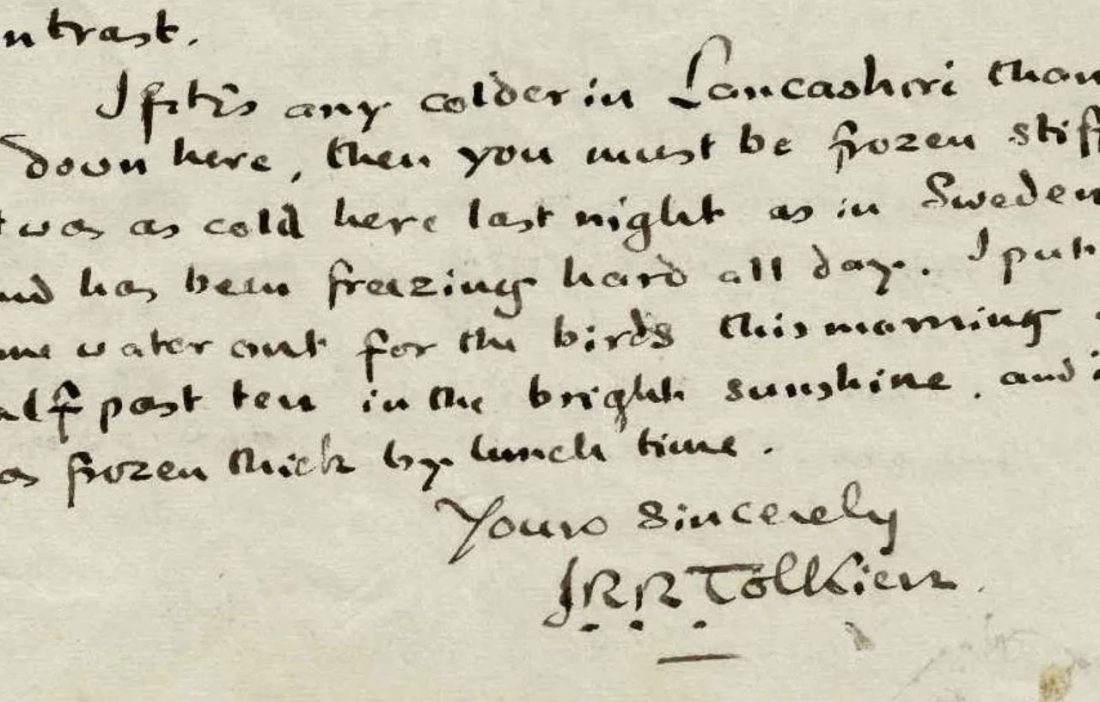 ntrast.
If it is any colder in Lancashire than
down here, then you must be frozen stiff
t was as cold here last night as in Sweden
nd has been freezing hard all day. I put
me water out for the birds this morning a
alf past ten in the bright sunshine, and i
as frozen thick by lunch time.
Yours sincerely
J.R.R. Tolkien.